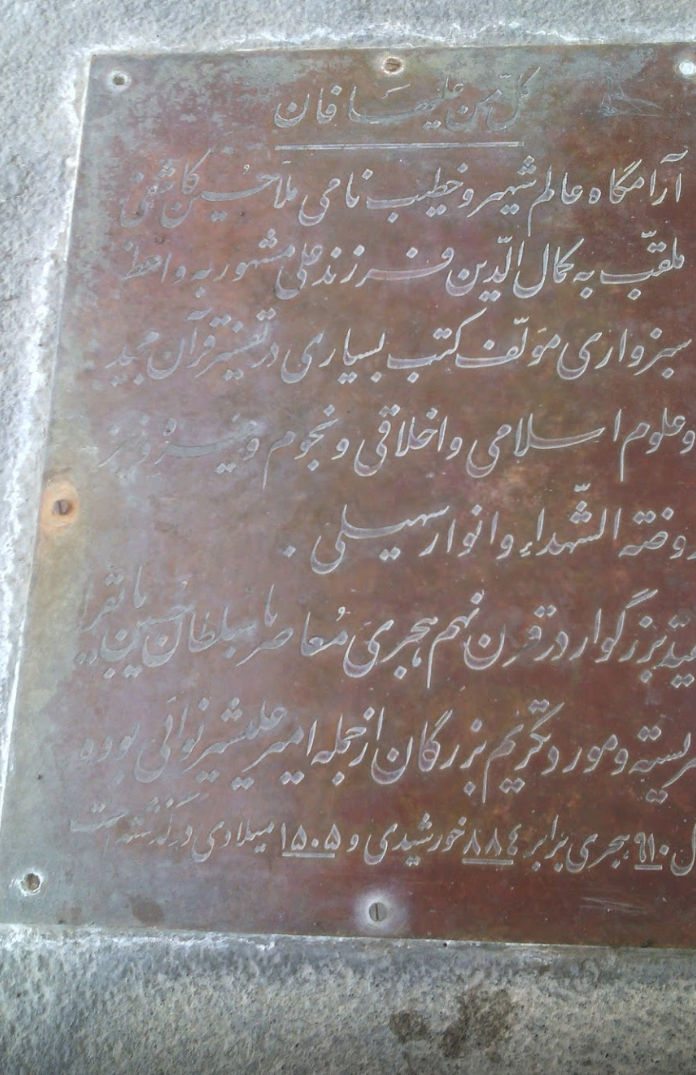 کلّ من علیها فان
آرامگاه عالم شهیر و خطیب نامی ملاحسین کاشفی
ملقّب به کمال الدّین فرزند علی مشهور به واعظ
سبزواری مؤلّف کتب بسیاری در تفسیر قرآن مجید
و علوم اسلامی و اخلاقی و نجوم و غیره و نیز
روضة الشّهداء و انوار سهیلی .
بزرگوار در قرن نهم هجری مُعاصر با سلطان حسین بایقرا
و مورد تکریم بزرگان از جمله امیر علیشیر نوائی بوده
۹۱۰ هجری برابر ۸۸٤ خورشیدی و ۱۵۰۵ میلادی درگذشته است